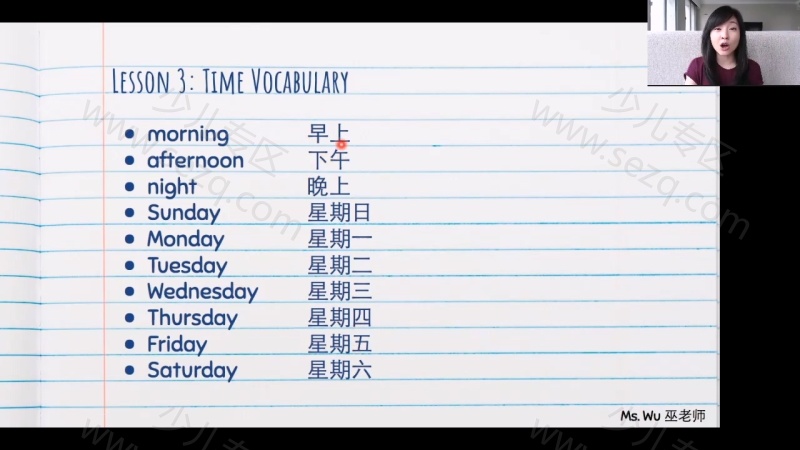 Lesson 3: Time Vocabulary
少儿专区
www.sezq.com
少儿专区
www.sezq.com
• morning 早上
• afternoon 下午
• night 晚上
• Sunday 星期日
• Monday 星期一
• Tuesday 星期二
• Wednesday 星期三
• Thursday 星期四
• Friday 星期五
• Saturday 星期六
Ms. Wu 巫老师
少儿专区
少儿专区